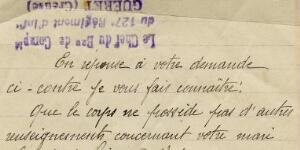 Le Chef du Bau de Compté
du 127e Régiment d'Infie
GUERET (Creuse)
En réponse à votre demande
ci-contre je vous fait connaître:
Que le corps ne possède pas d'autres
renseignements concernant votre mari